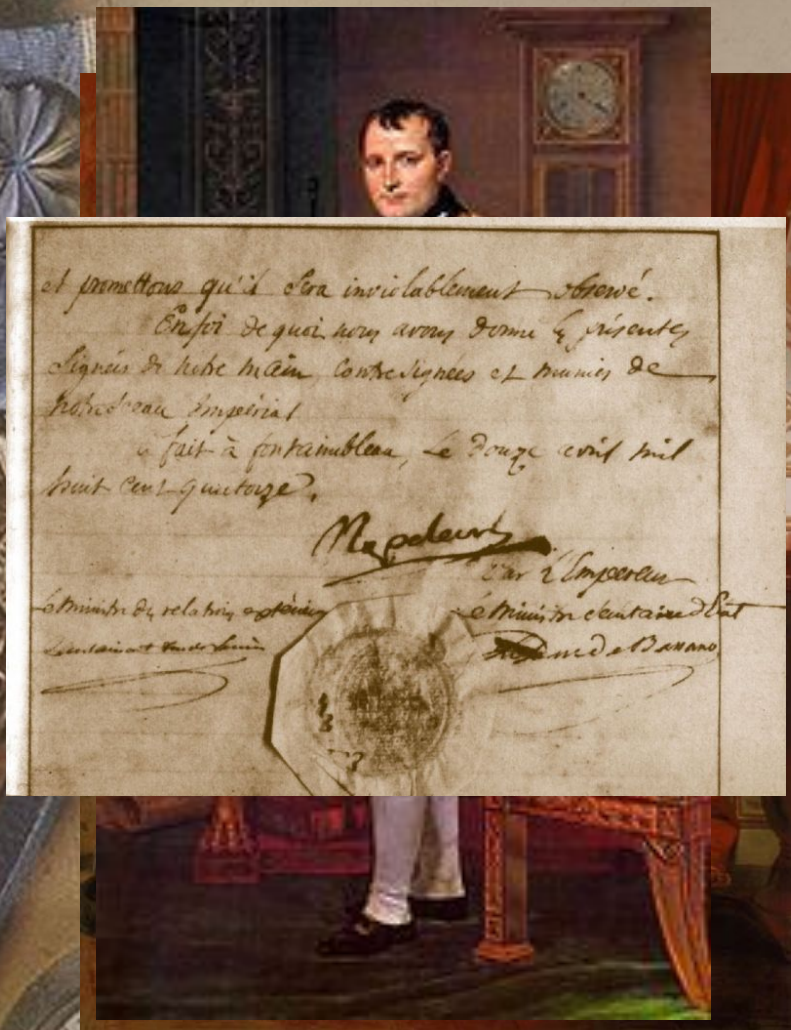 et promettons qu'il sera inviolablement observé.
En foi de quoi nous avons donné les présentes
signées de notre main, contresignées et munies de
notre sceau Impérial
fait à fontainebleau, le douze avril mil
huit cent quatorze.
Napoleon
Par l'Empereur
Le Ministre des relations extérieures
Le Ministre Secrétaire d'Etat
Caulaincourt duc de Vicence
Le Duc de Bassano